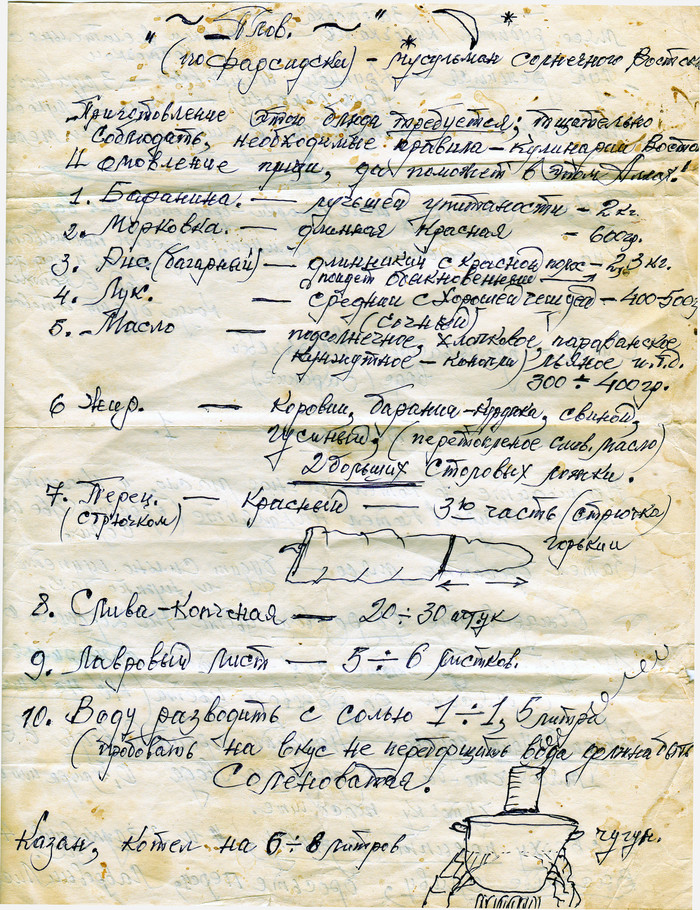 " ~ Плов. ~ "
(по фарсидски) - мусульман солнечного Востока
Приготовление этого блюда требуется; тщательно
соблюдать, необходимые правила - кулинарии Востока
И омовление пищи, да поможет в этом Аллах!
1. Баранина. — лучшей упитаности - 2 кг.
2. Морковка. — длинная Красная - 600гр.
3. Рис. (багарный) — длинникий с красной полос - 2,3 кг.
пойдет обыкновенный
4. Лук. — средний с хорошей чешуей - 400-500г
(сочный)
5. Масло — подсолнечное, хлопковое,
(кунжутное - конопли) льяное и.т.д.
300 ÷ 400гр.
6 Жир. — Коровий, барания - Курдюка, свиной,
гусиный, (перетопленое слив. масло)
2 больших столовых ложки.
7. Перец. — Красный — 3ю часть (стрючка)
(стрючком) горький
8. Слива-Копченая — 20 ÷ 30 штук
9. Лавровый лист — 5 ÷ 6 листков.
10. Воду разводить с солью 1 ÷ 1,5 литра
(пробовать на вкус не перегорщить вода должна быть
Соленоватая.
Казан, котел на 6 ÷ 8 литров чугун.